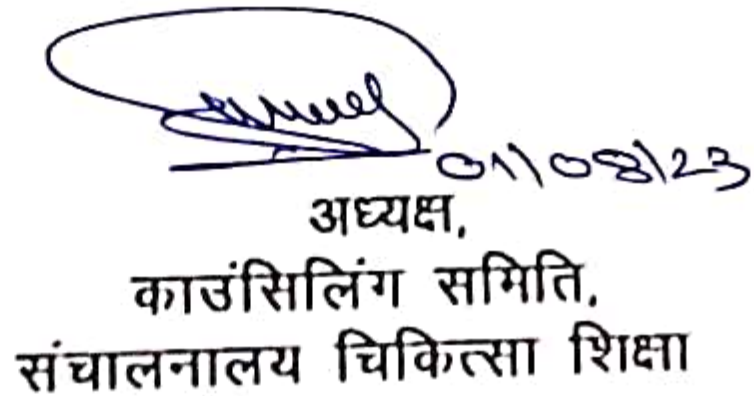 01/08/23
अध्यक्ष,
काउंसिलिंग समिति,
संचालनालय चिकित्सा शिक्षा